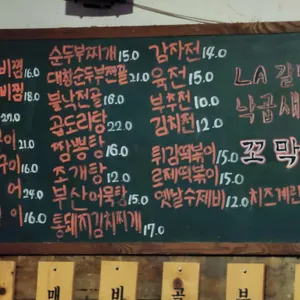 비찜 16.0
비찜 18.0
27.0
이 21.0
구이 21.0
어 24.0
이 16.0
순두부찌개 15.0
대창순두부전골 21.0
불낙전골 16.0
곱도리탕 22.0
짬뽕탕 16.0
조개탕 12.0
부산어묵탕 15.0
통돼지김치찌개 17.0
감자전 14.0
육전 15.0
부추전 10.0
김치전 12.0
튀김떡볶이 15.0
로제떡볶이 15.0
옛날수제비 12.0
LA 갈
낙곱새
꼬막
치즈계란
매 비 골 부